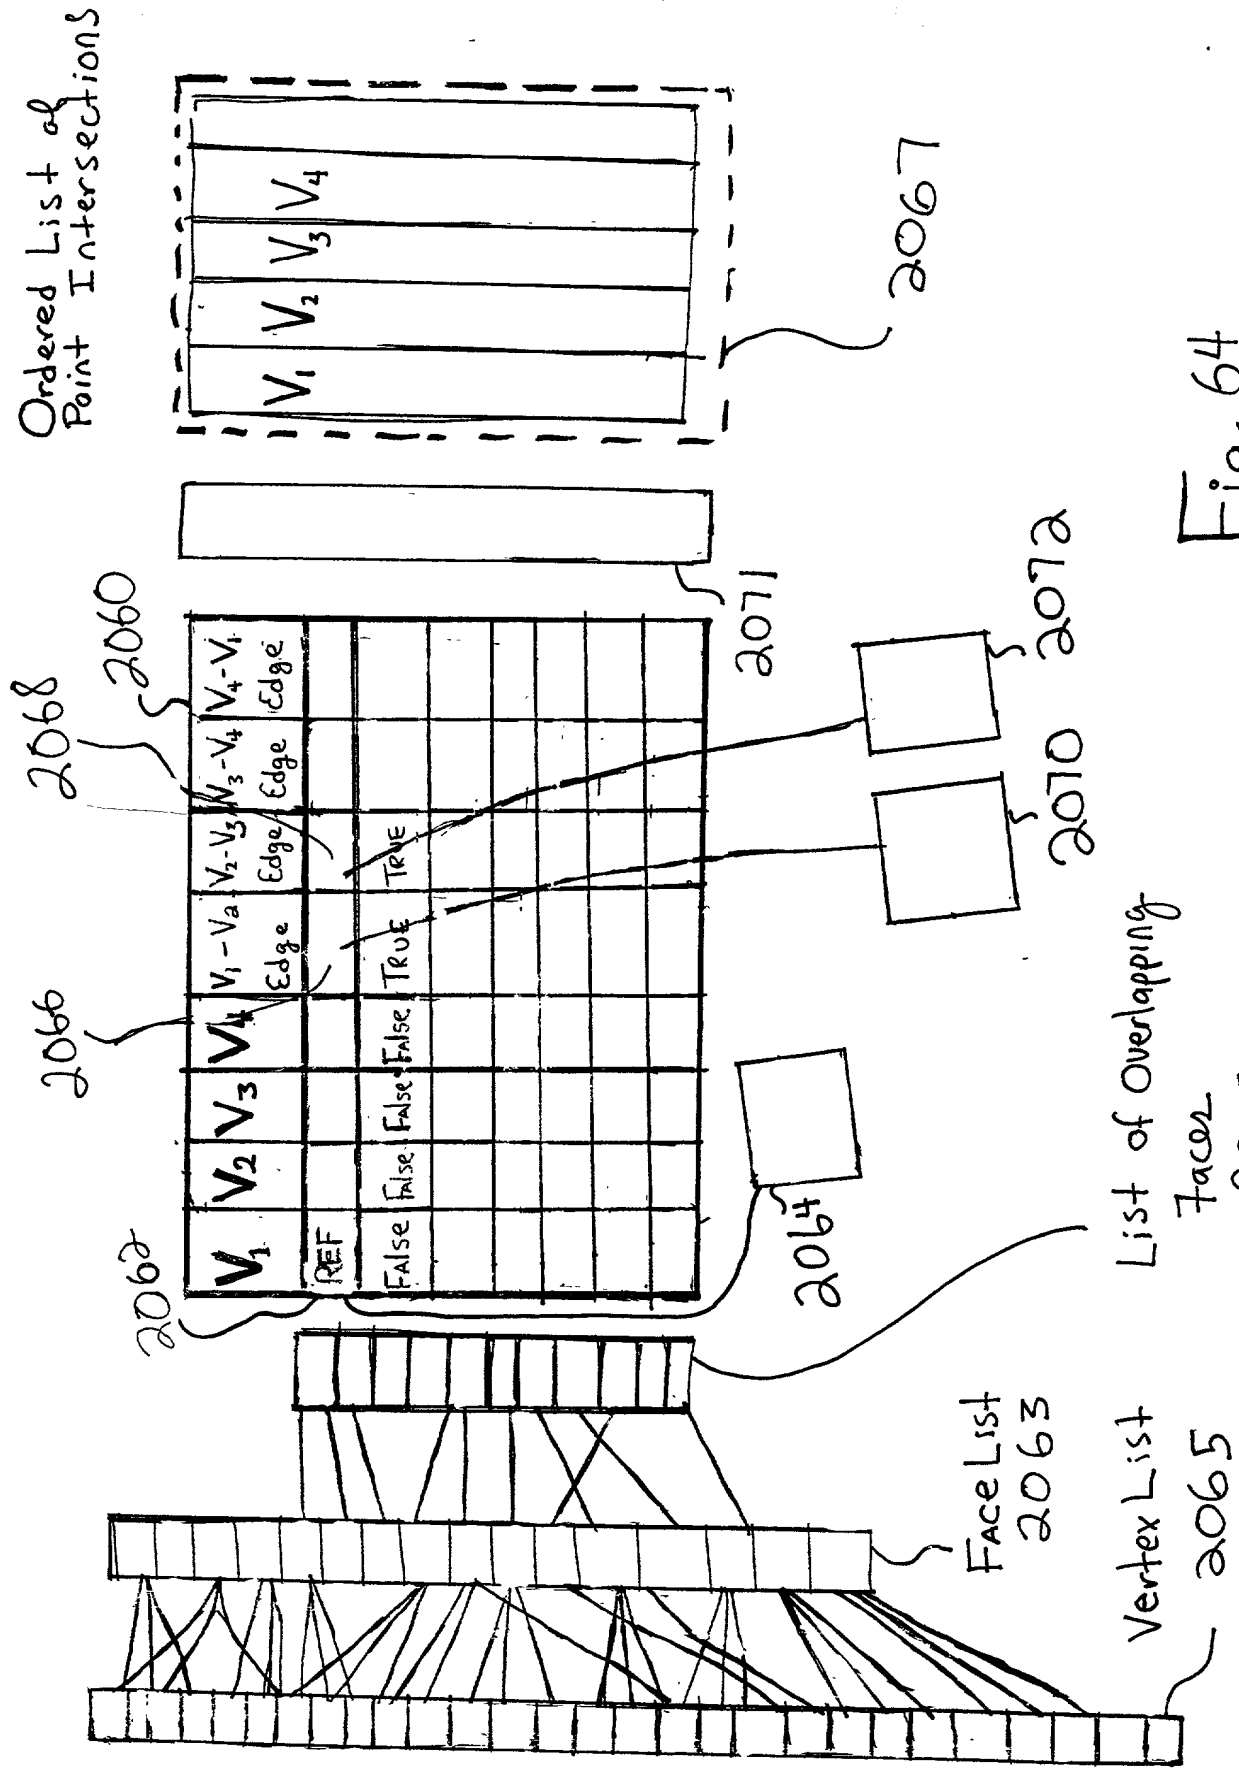 Ordered List of
Point Intersections
2062
2066
2068
2060
V1
V2
V3
V4
V1-V2
Edge
V2-V3
Edge
V3-V4
Edge
V4-V1
Edge
REF
False
False
False
False
TRUE
TRUE
V1
V2
V3
V4
2064
2070
2072
2071
2067
List of Overlapping
Faces
Face List
2063
Vertex List
2065
Fig. 64